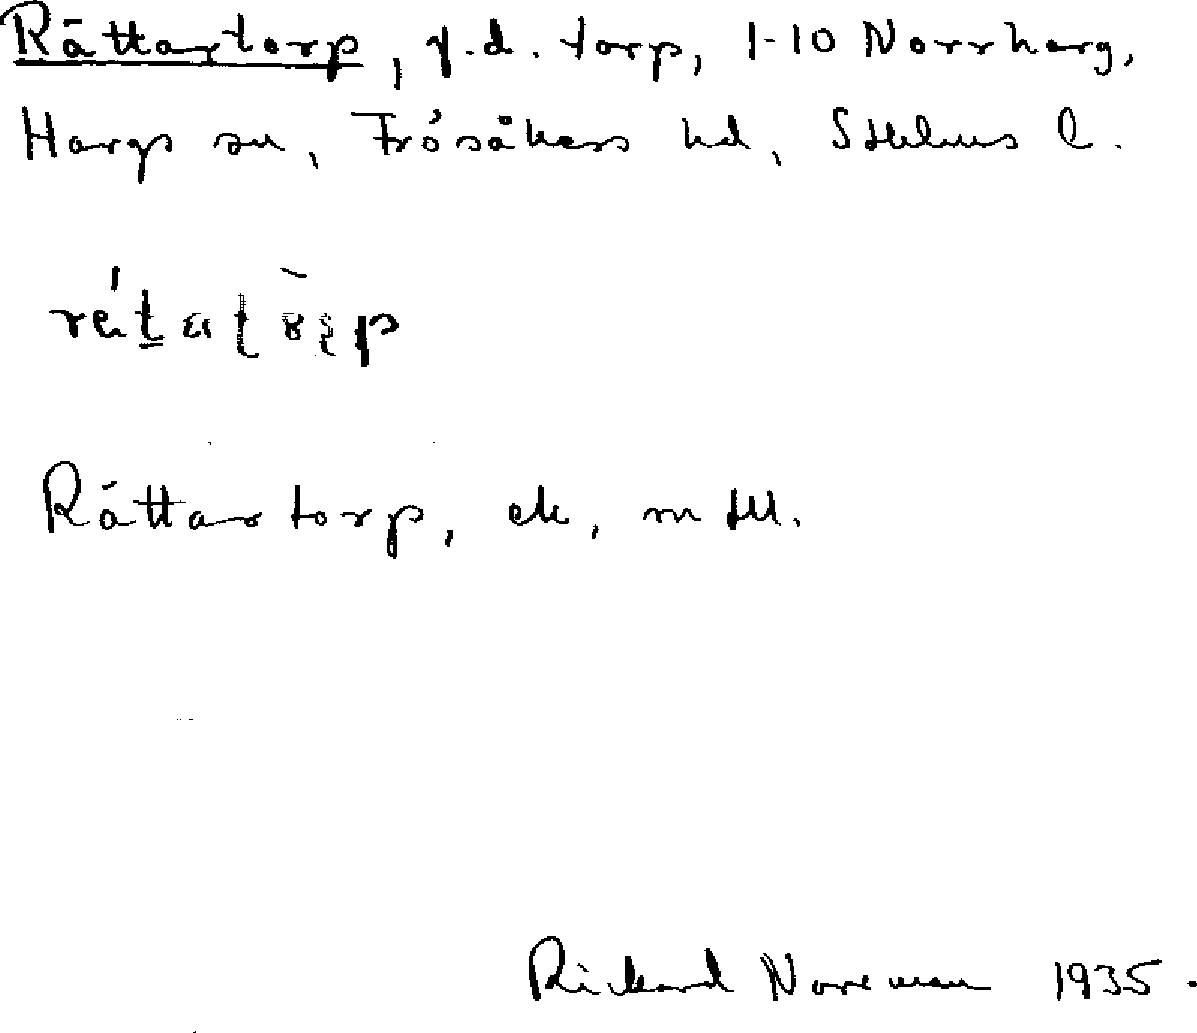 Rättartorp, f.d. torp, 1-10 Norrharg,
Hargs sn, Frösåkers hd, Sthlms l.
Rättartorp, ek, m fll.
Rickard Noreman 1935.